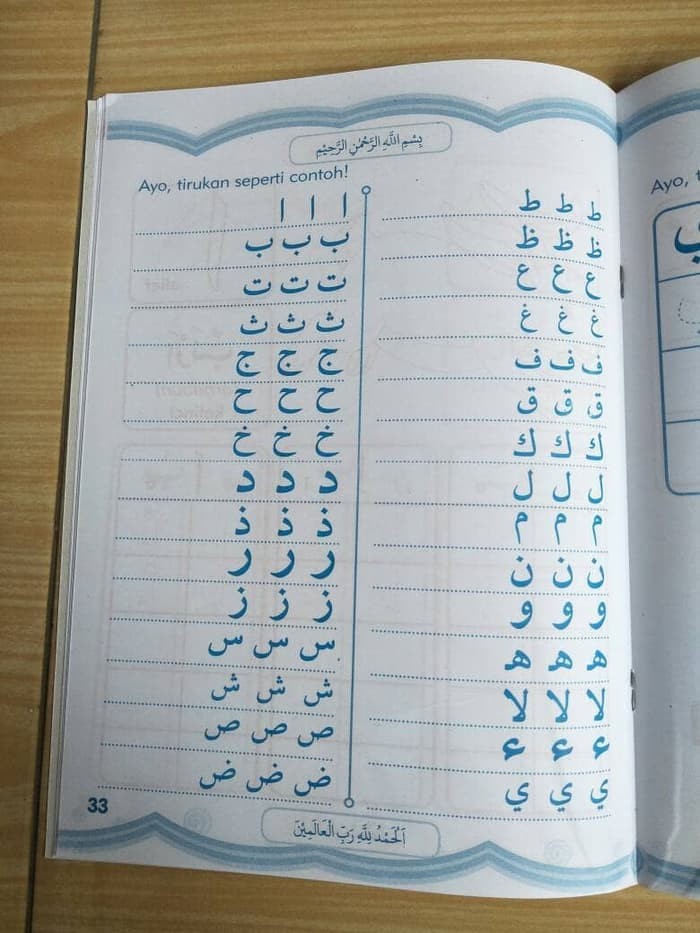 بِسْمِ اللَّهِ الرَّحْمَٰنِ الرَّحِيْمِ
Ayo, tirukan seperti contoh!
ا ا ا
ب ب ب
ت ت ت
ث ث ث
ج ج ج
ح ح ح
خ خ خ
د د د
ذ ذ ذ
ر ر ر
ز ز ز
س س س
ش ش ش
ص ص ص
ض ض ض
ط ط ط
ظ ظ ظ
ع ع ع
غ غ غ
ف ف ف
ق ق ق
ك ك ك
ل ل ل
م م م
ن ن ن
و و و
ه ه ه
لا لا لا
ء ء ء
ي ي ي
33
اَلْحَمْدُ لِلَّهِ رَبِّ الْعَالَمِيْنَ
Ayo,